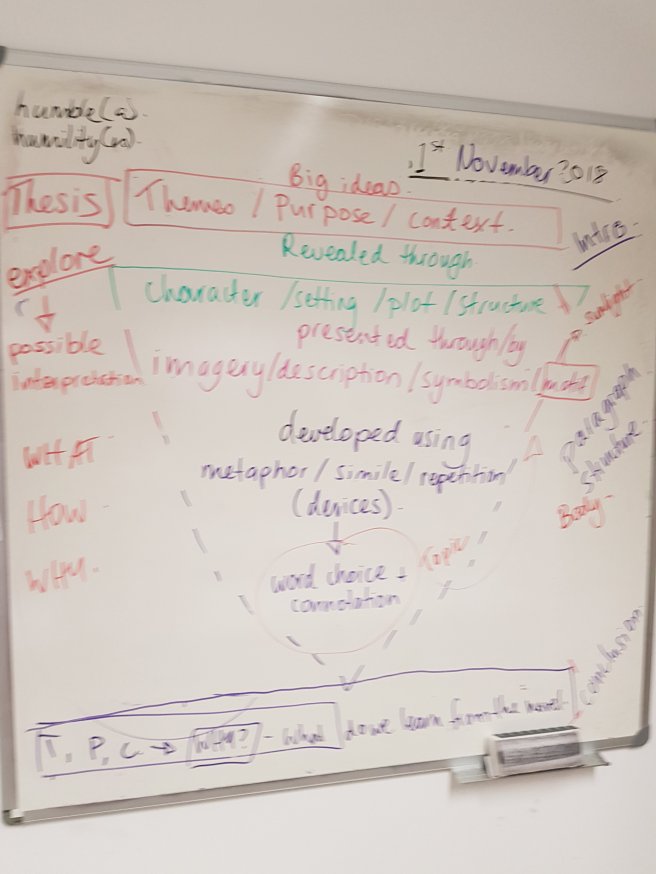 humble(a).
humility(n).
1st November 2018
Big ideas.
Thesis
Themes / Purpose / context.
Intro
Revealed through
explore
character / setting / plot / structure
sunlight
presented through/by
possible
interpretation
imagery/description/symbolism/motif
developed using
paragraph
structure
WHAT
metaphor / simile / repetition
(devices).
How
Body
Topic
WHY
word choice +
connotation
conclusion
T, P, C → WHY? - What do we learn from the novel